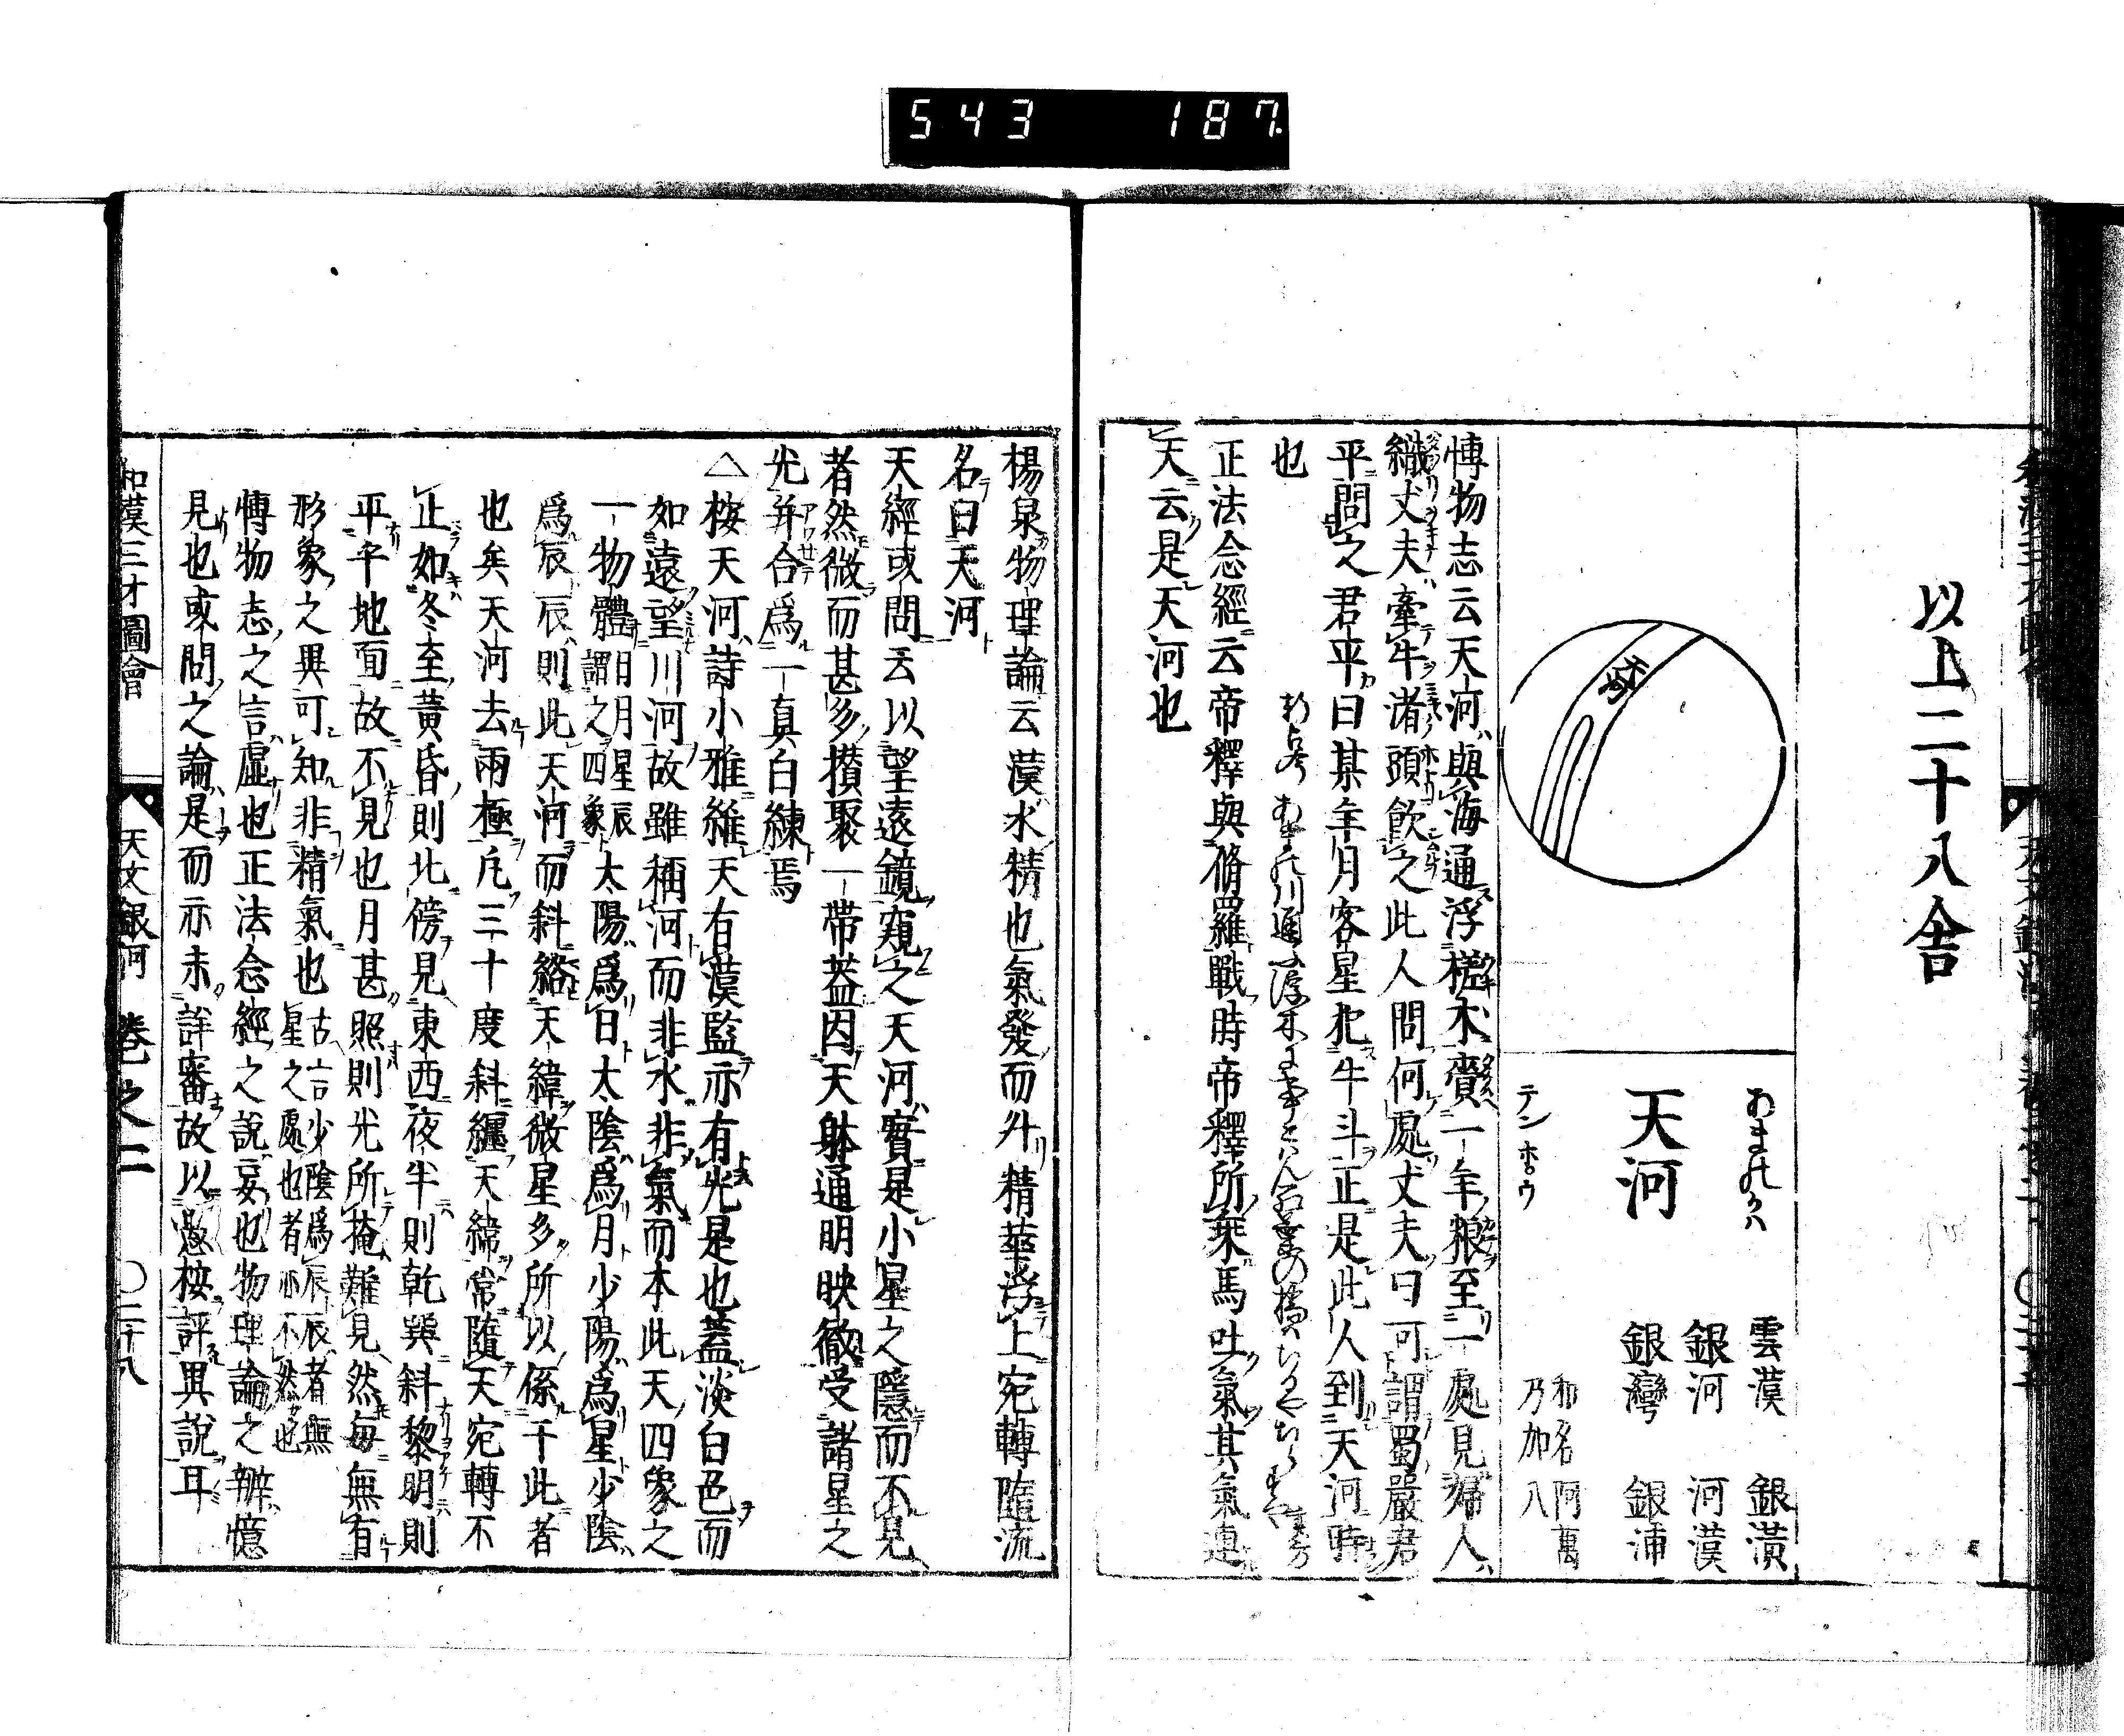 543 187
以上二十八舍
天河
あまのかは
天河
テンホウ
雲漢 銀漢
銀河 河漢
銀灣 銀浦
和名阿萬
乃加八
博物志云天河與海通浮槎木齎一年粮至一處見婦人
織丈夫牽牛渚頭飲之此人問何處丈夫曰可謂蜀嚴君
平問之君平曰某年月客星犯牛斗正是此人到天河時
也
正法念經云帝釋與脩羅戰時帝釋所乘馬吐氣其氣連
天云是天河也
楊泉物理論云漢水精也氣發而升精華浮上宛轉隨流
名曰天河
天經或問云以望遠鏡窺之天河實是小星之隱而不見
者然微而甚多攅聚一帶葢因天躰通明映徹受諸星之
光并合爲一真白練焉
△按天河詩小雅維天有漢監亦有光是也蓋淡白色而
如遠望川河故雖稱河而非水非氣而本此天四象之
一物體日月星辰謂之四象太陽爲日太陰爲月少陽爲星少陰
爲辰辰則此天河而斜絡天緯微星多所以係于此者
也矣天河去兩極凡三十度斜纒天緯常隨天宛轉不
正如冬至黃昏則北傍見東西夜半則乾巽斜黎明則
平平地面故不見也月甚照則光所掩難見然每無有
形象之異可知非精氣也古言少陰爲辰辰者無星之處也者亦不然也
博物志之言虛也正法念經之說妄也物理論之辨憶
見也或問之論是而亦未詳審故以愚按評異說耳
和漢三才圖會 天文 銀河 卷之二 〇二十八